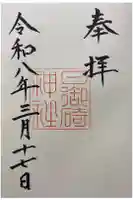 奉拝
御碕
神社
令和八年三月十七日